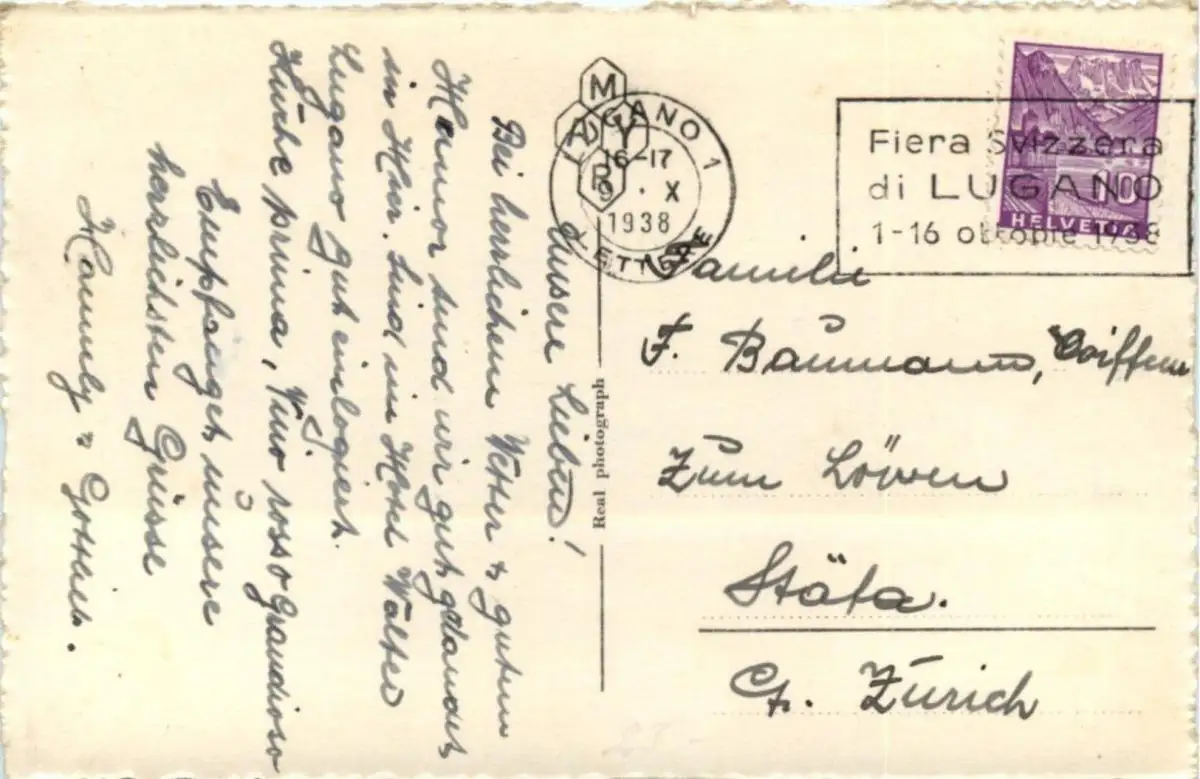 Unsere Lieben!
Bei herrlichem Wetter & gutem
Humor sind wir gut gelandet
in Hier. Sind im Hotel Walter
Lugano gut einlogiert.
Küche prima, Vino rosso Grandioso
Empfanget unsere
herrlichsten Grüsse
Hannly & Gottlieb.
Real photograph
MAYR
LUGANO 1
16-17
9. X
1938
LETTERE
Fiera Svizzera
di LUGANO
1-16 ottobre 1938
10
HELVETIA
Familie
F. Baumann, Coiffeur
Zum Löwen
Stäfa.
Ct. Zürich